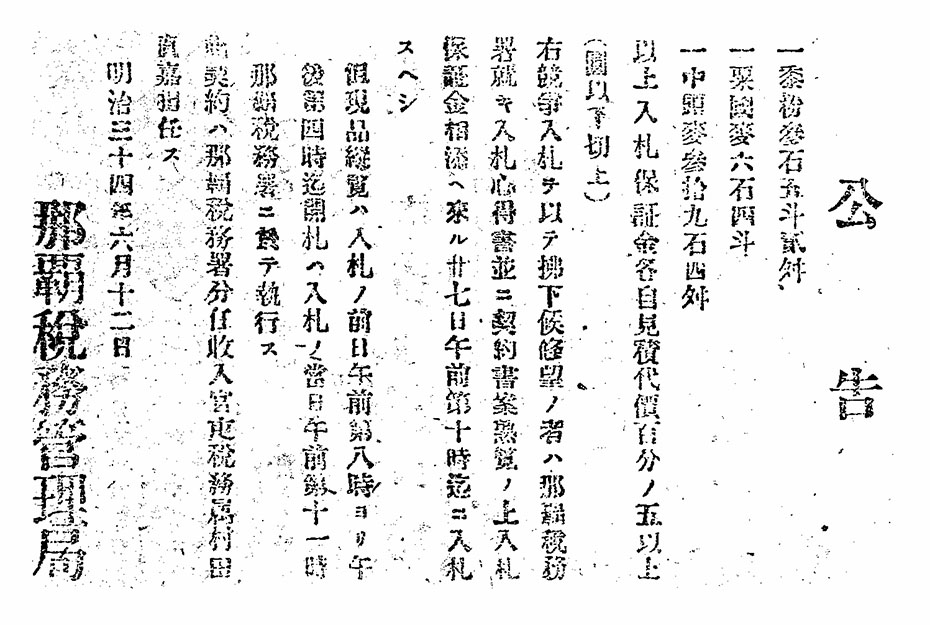 公告
一黍粉參石五斗貳舛
一粟國麥六石四斗
一中頭麥參拾九石四舛
以上入札保証金各自見積代價百分ノ五以上
(圓以下切上)
右競爭入札ヲ以テ拂下候條望ノ者ハ那覇税務
署就キ入札心得書並ニ契約書案熟覧ノ上入札
保証金相添ヘ來ル廿七日午前第十時迄ニ入札
スヘシ
但現品縦覧ハ入札ノ前日午前第八時ヨリ午
後第四時迄開札ハ入札ノ當日午前第十一時
那覇税務署ニ於テ執行ス
契約ハ那覇税務署分任收入官吏税務属村田
眞嘉担任ス
明治三十四年六月十二日
那覇税務管理局